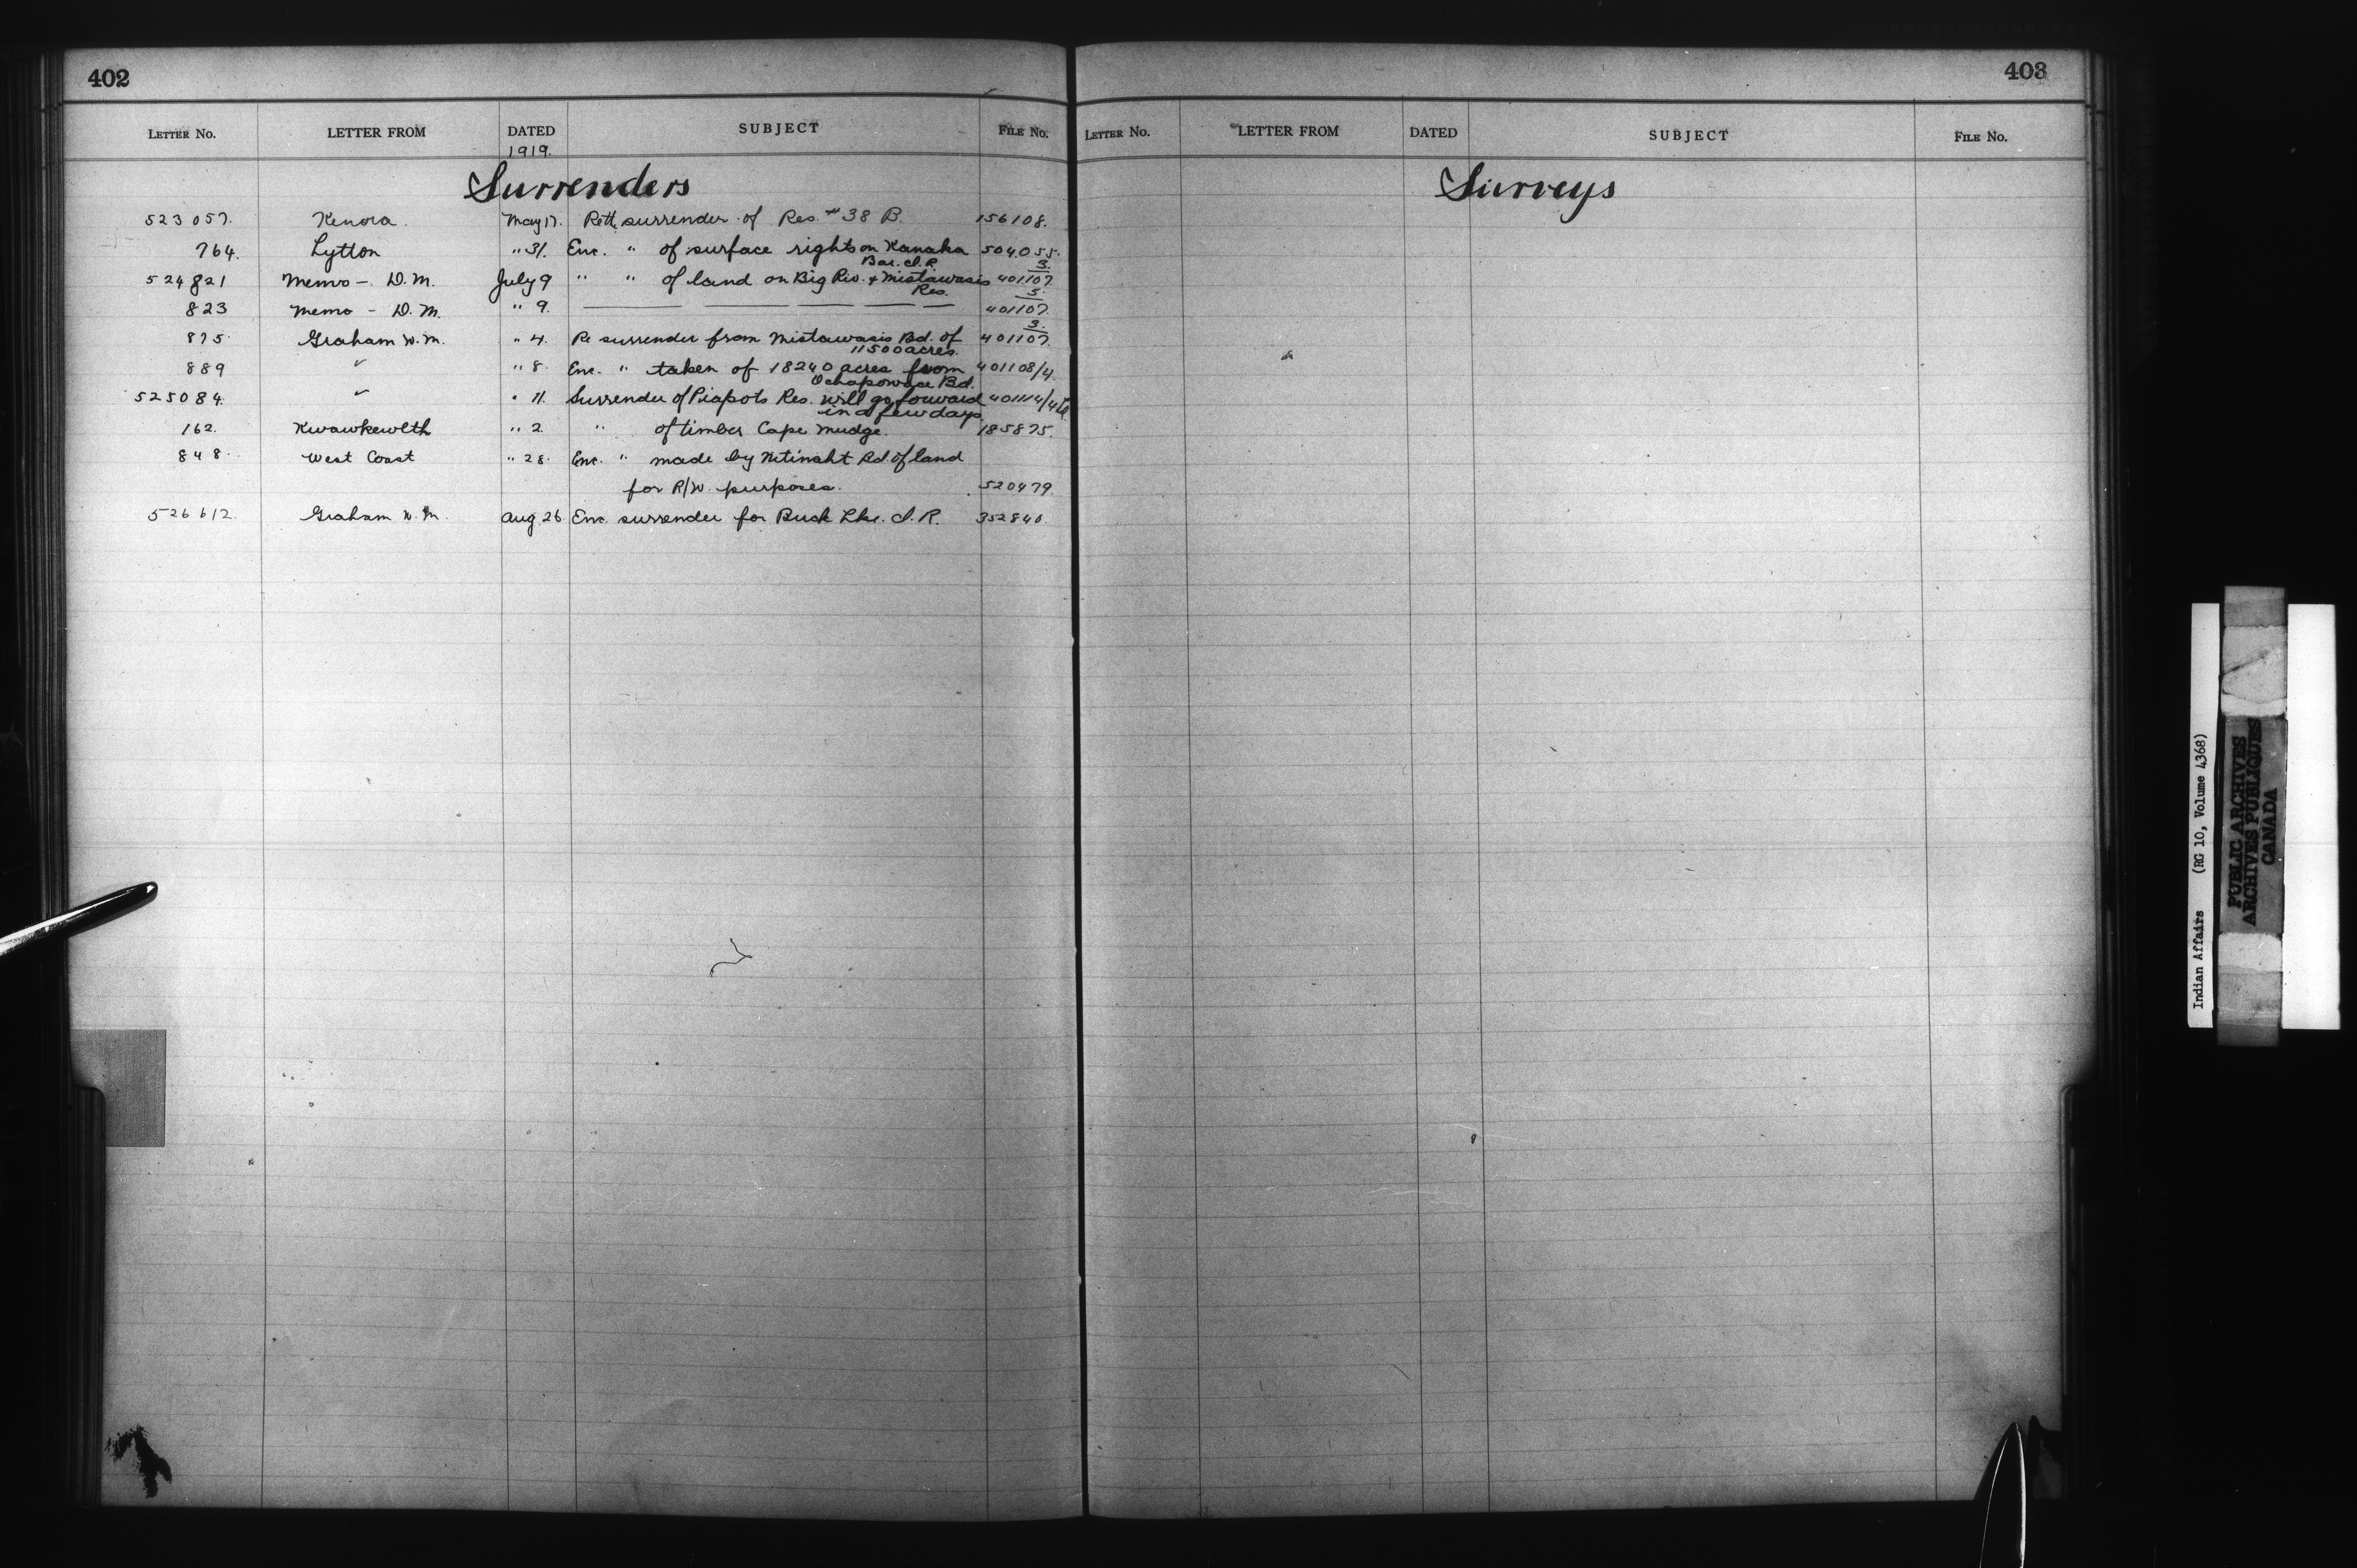 402
LETTER NO. LETTER FROM DATED SUBJECT FILE NO.
1919.
Surrenders
523057. Kenora. May 17. Retg. surrender of Res. # 38 B. 156108.
764. Lytton " 31. Enc. " of surface rights on Kanaka 504055.
Bar. I.R.
524821 Memo - D.M. July 9 " " of land on Big Riv. & Mistawasis 401107/3.
Res.
823 Memo - D.M. " 9. — — — — — 401107/3.
875. Graham W.M. " 4. Re surrender from Mistawasis Bd. of 401107/3.
11500 acres.
889 " " 8. Enc. " taken of 18240 acres from 401108/4.
Ochapowace Bd.
525084. " " 11. Surrender of Piapots Res. will go forward 401114/4
in a few days.
162. Kwawkewlth " 2. " of timber Cape Mudge. 185875.
848. West Coast " 28. Enc. " made by Nitinaht Bd. of land
for R/W. purposes. 520479.
526612. Graham W.M. Aug. 26. Enc. surrender for Buck Lke. I.R. 352840.
403
LETTER NO. LETTER FROM DATED SUBJECT FILE NO.
Surveys
Indian Affairs (RG 10, Volume 4368)
PUBLIC ARCHIVES
ARCHIVES PUBLIQUES
CANADA